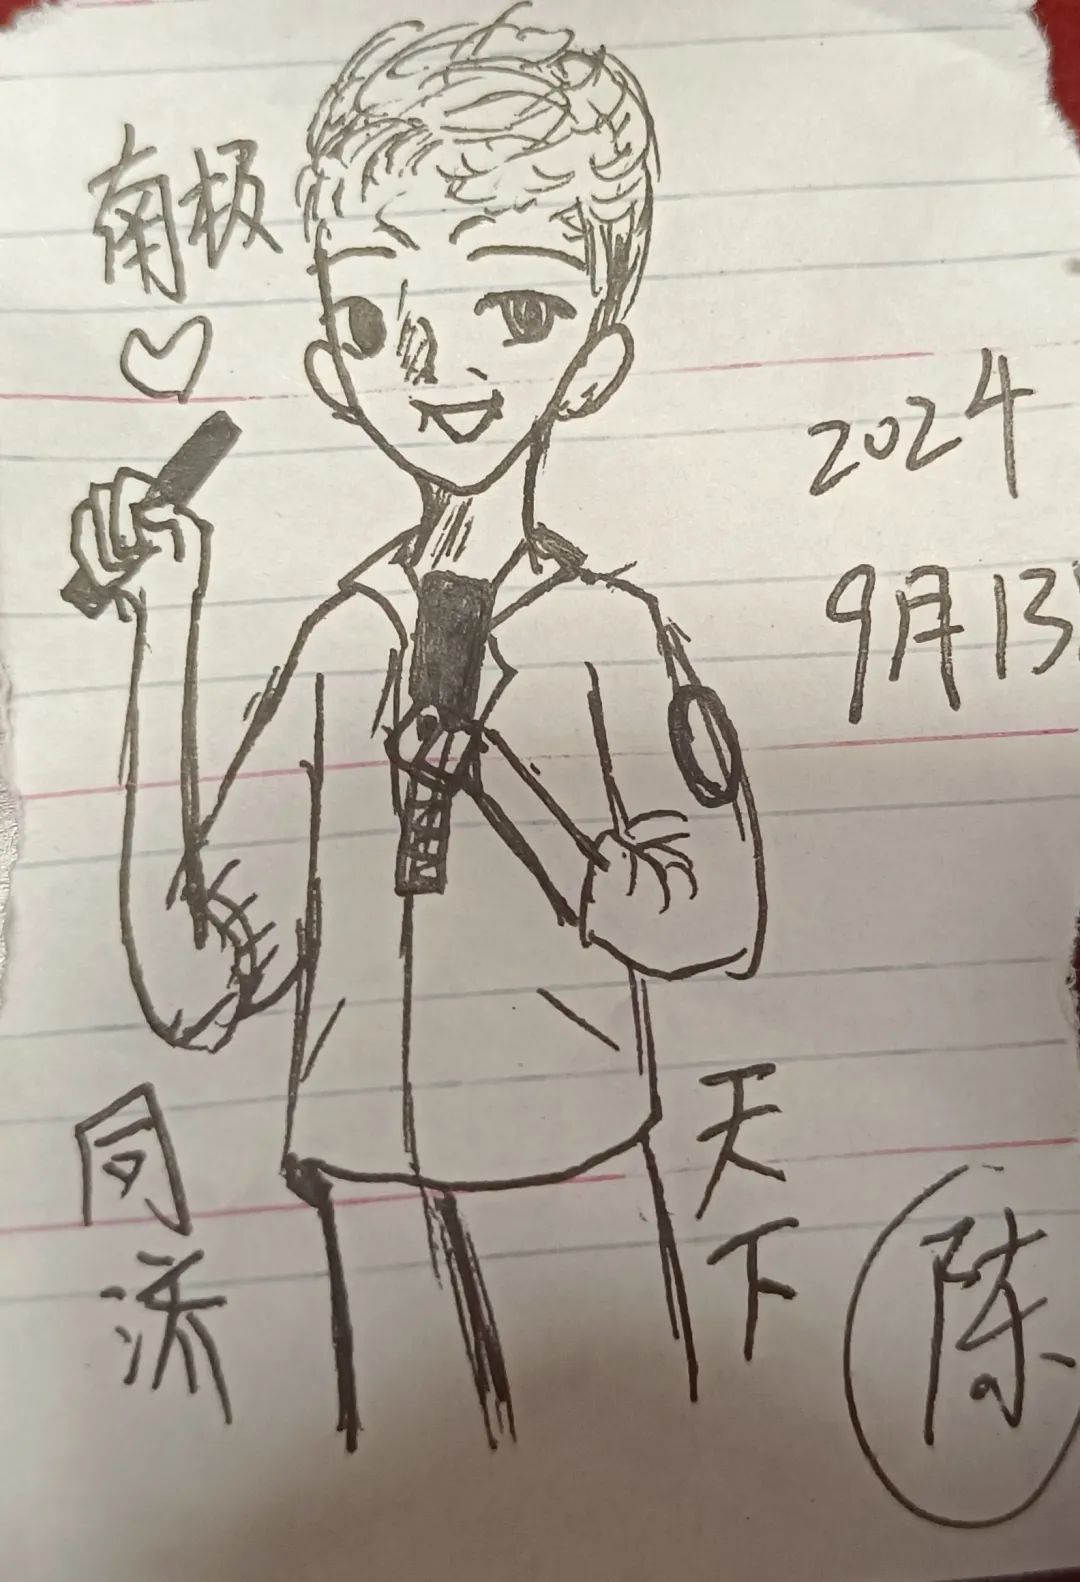 南极
2024
9月13
同流
天下
陈